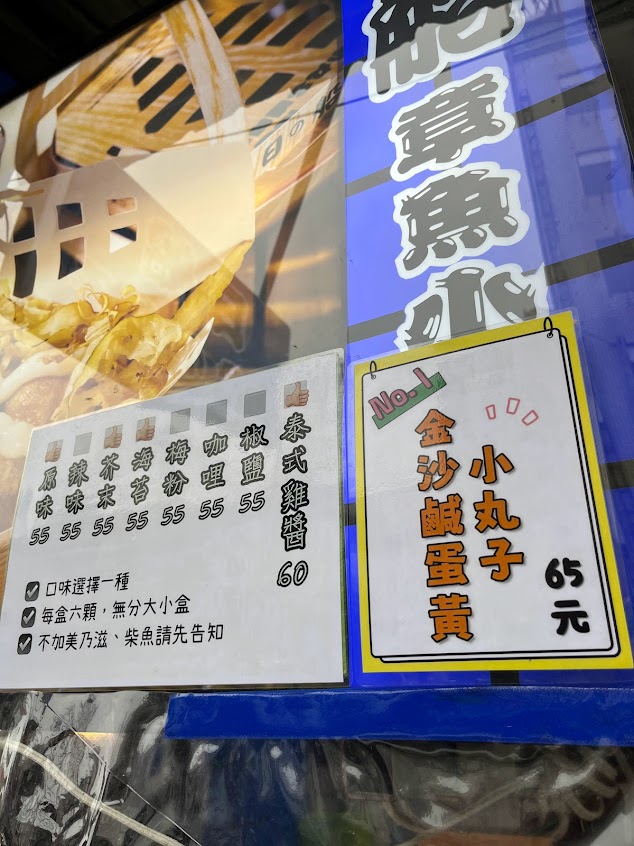 章魚小
No.1
金沙鹹蛋黃
小丸子
65元
泰式雞醬 60
椒鹽 55
咖哩 55
梅粉 55
海苔 55
芥末 55
辣味 55
原味 55
口味選擇一種
每盒六顆，無分大小盒
不加美乃滋、柴魚請先告知